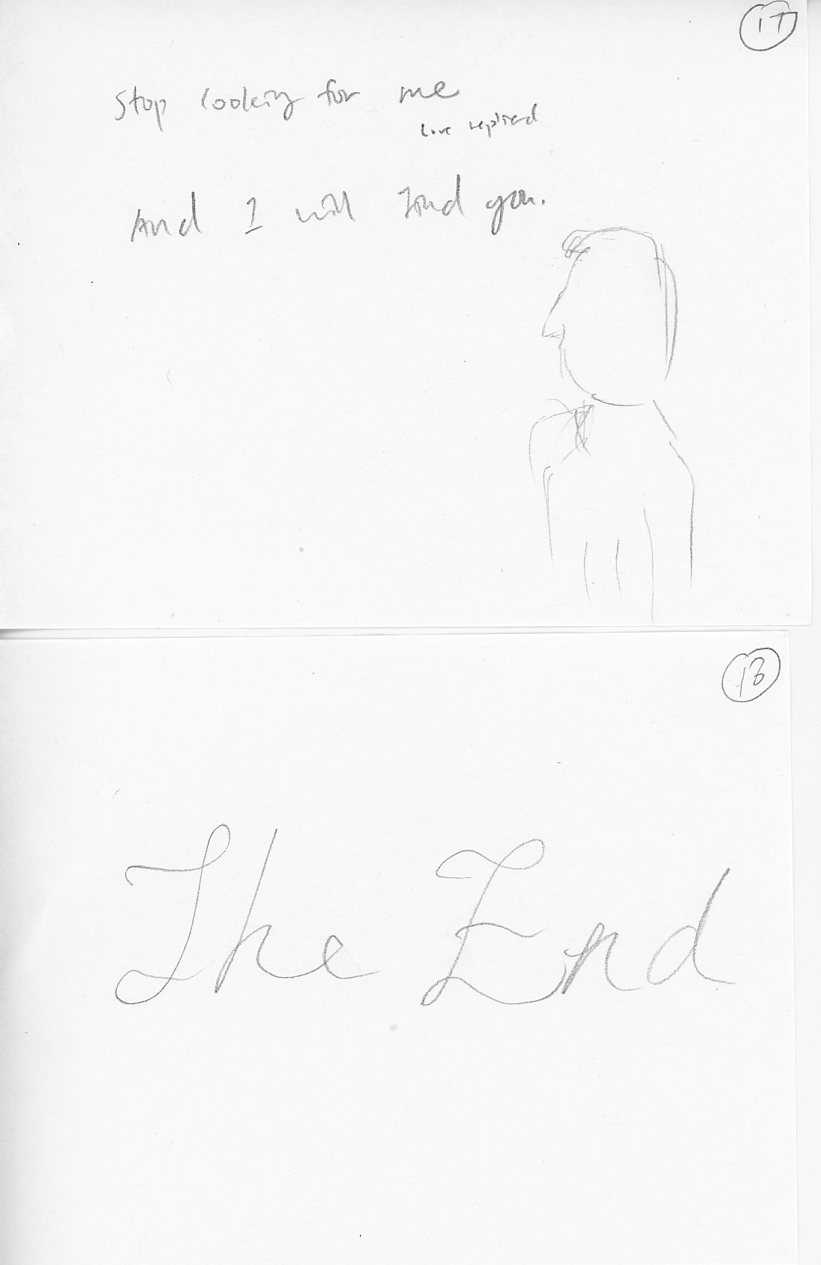 17
Stop looking for me
Love replied
And I will find you.
18
The End